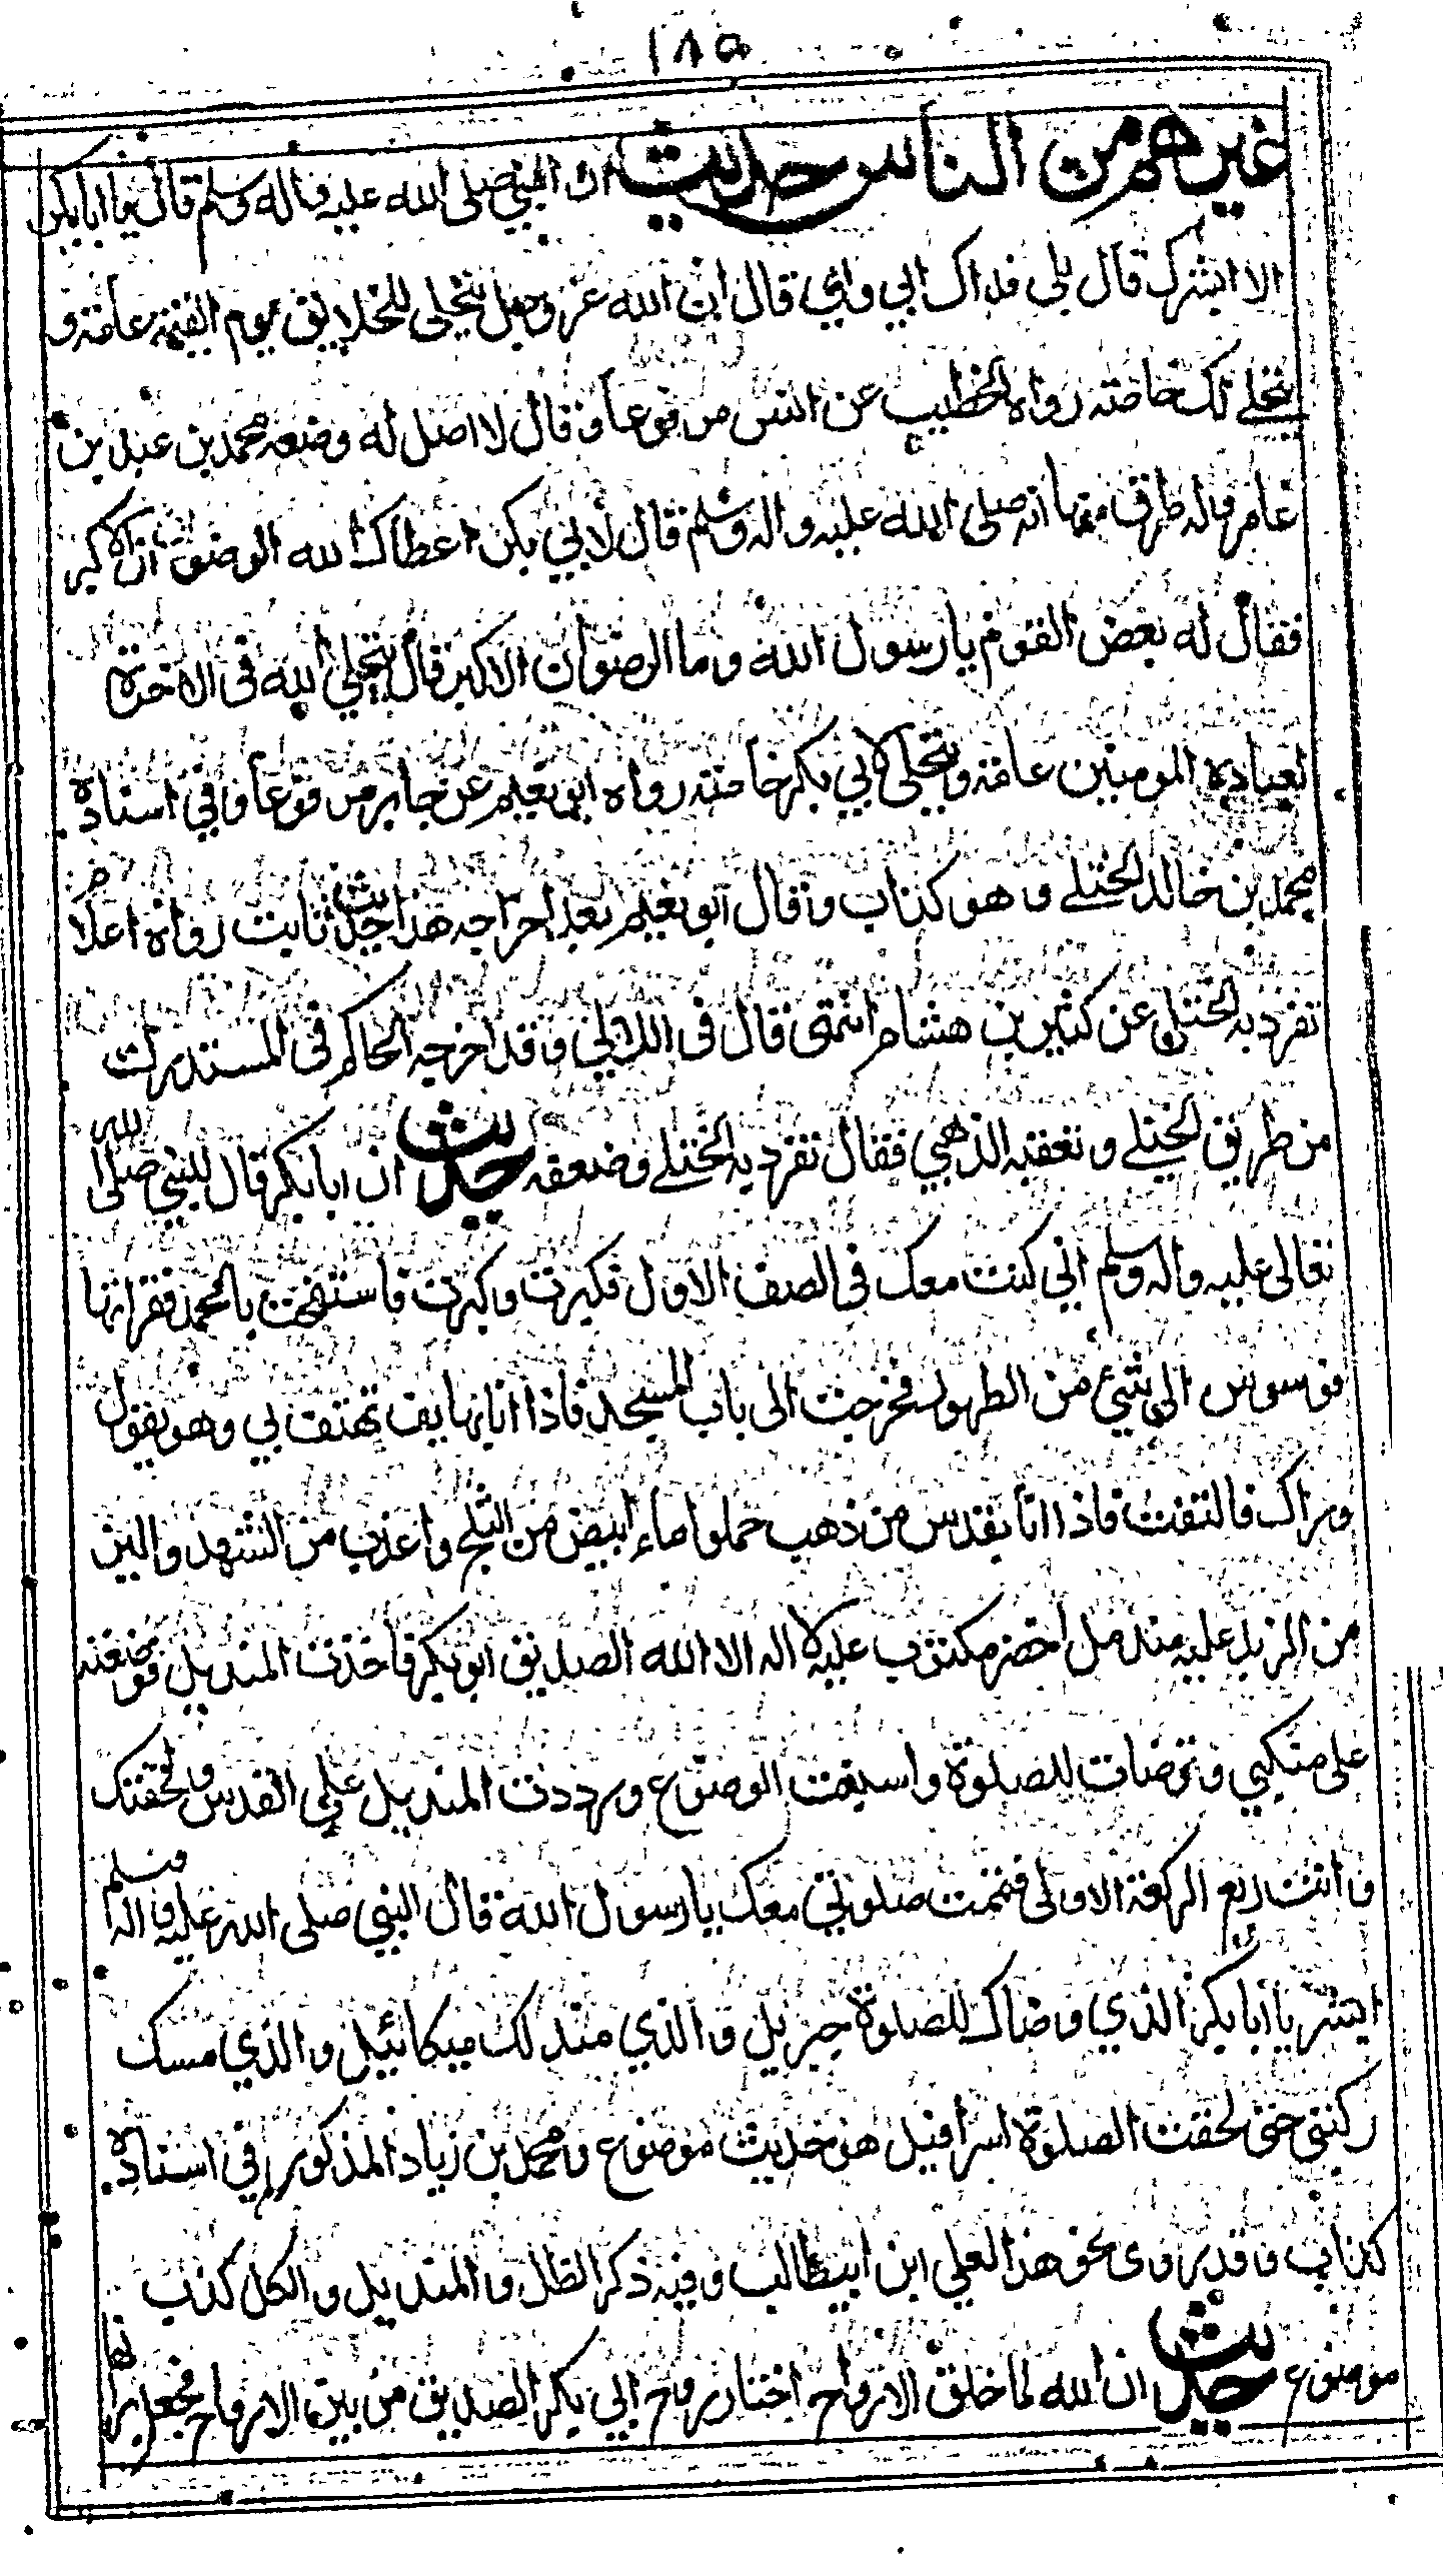 ١٨٥
غيرهم من الناس حديث ان النبي صلى الله عليه واله وسلم قال يا ابا بكر
الا ابشرك قال بلى فداك ابي وامي قال ان الله عز وجل يتجلى للخلايق يوم القيمة عامة و
يتجلى لك خاصة رواه الخطيب عن انس مرفوعا وقال لا اصل له وضعه محمد بن عبد بن
عامر وله طرق منها انه صلى الله عليه واله وسلم قال لابي بكر اعطاك الله الرضوان الاكبر
فقال له بعض القوم يا رسول الله وما الرضوان الاكبر قال يتجلى الله في الاخرة
لعباده المومنين عامة ويتجلى لابي بكر خاصة رواه ابو نعيم عن جابر مرفوعا وفي اسناده
محمد بن خالد الختلي وهو كذاب وقال ابو نعيم بعد اخراجه هذا حديث ثابت رواه اعلام
تفرد به الختلي عن كثير بن هشام انتهى قال في اللالي وقد اخرجه الحاكم في المستدرك
من طريق الختلي وتعقبه الذهبي فقال تفرد به الختلي وضعفه حديث ان ابا بكر قال للنبي صلى الله
تعالى عليه واله وسلم اني كنت معك في الصف الاول فكبرت وكبرت فاستفتحت بالحمد فقراتها
فوسوس الي شيئ من الطهور فخرجت الى باب المسجد فاذا انا بهاتف يهتف بي وهو يقول
وراك فالتفت فاذا انا بقدس من ذهب حملوا ماء ابيض من الثلج واعذب من الشهد والين
من الزبد عليه منديل اخضر مكتوب عليه لا اله الا الله الصديق ابو بكر فاخذت المنديل فوضعته
على منكبي وتوضات للصلوة واسبغت الوضوء ورددت المنديل على القدس ولحقتك
وانت راكع الركعة الاولى فتممت صلوتي معك يا رسول الله قال النبي صلى الله عليه واله وسلم
ابشر يا ابا بكر الذي وضاك للصلوة جبريل والذي مندلك ميكائيل والذي مسك
ركبتي حتى لحقت الصلوة اسرافيل هو حديث موضوع ومحمد بن زياد المذكور في اسناده
كذاب وقد روى نحو هذا لعلي ابن ابيطالب وفيه ذكر الطل والمنديل والكل كذب
موضوع حديث ان الله لما خلق الارواح اختار روح ابي بكر الصديق من بين الارواح فجعل ترابها